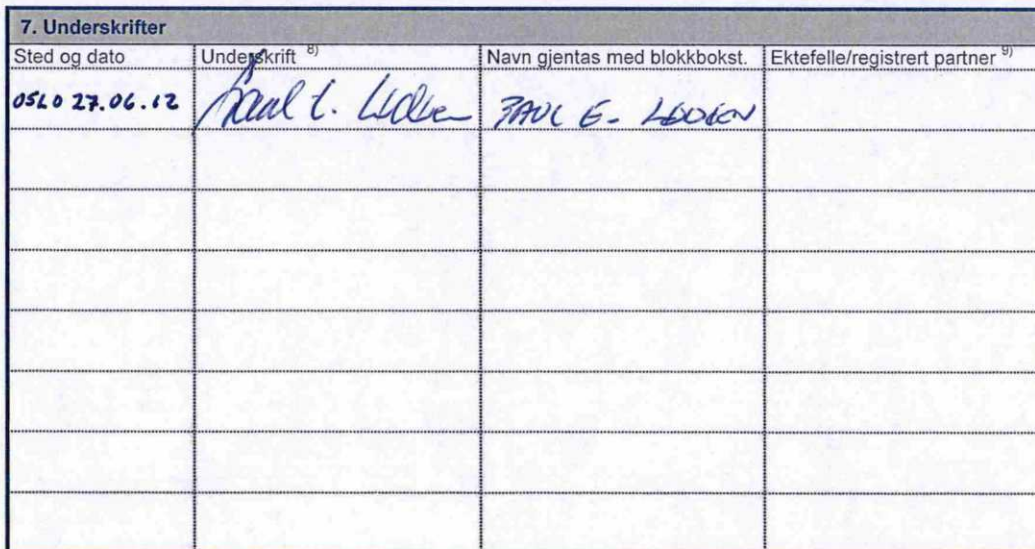 7. Underskrifter
Sted og dato Underskrift 8) Navn gjentas med blokkbokst. Ektefelle/registrert partner 9)
OSLO 27.06.12 Paul E. PAUL E.